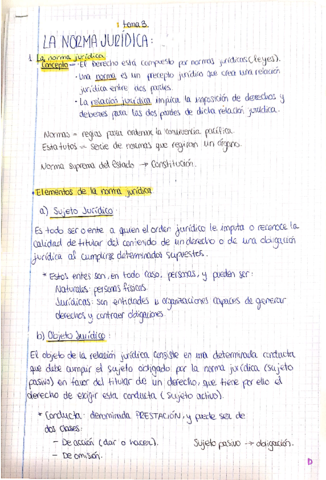 tema 3.
LA NORMA JURÍDICA:
1. La norma jurídica
Concepto - El Derecho está compuesto por normas jurídicas (leyes).
- Una norma es un precepto jurídico que crea una relación
jurídica entre dos partes.
- La relación jurídica implica la imposición de derechos y
deberes para las dos partes de dicha relación jurídica.
Normas = reglas para ordenar la convivencia pacífica.
Estatutos = serie de normas que regulan un órgano.
Norma suprema del Estado → Constitución.
• Elementos de la norma jurídica
a) Sujeto Jurídico
Es todo ser o ente a quien el orden jurídico le imputa o reconoce la
calidad de titular del contenido de un derecho o de una obligación
jurídica al cumplirse determinados supuestos.
* Estos entes son, en todo caso, personas, y pueden ser:
Naturales: personas físicas.
Jurídicas: son entidades u organizaciones capaces de generar
derechos y contraer obligaciones.
b) Objeto Jurídico:
El objeto de la relación jurídica consiste en una determinada conducta
que debe cumplir el sujeto obligado por la norma jurídica (sujeto
pasivo) en favor del titular de un derecho, que tiene por ello el
derecho de exigir esta conducta (sujeto activo).
* Conducta: denominada PRESTACIÓN, y puede ser de
dos clases:
- De acción (dar o hacer). Sujeto pasivo → obligación.
- De omisión.